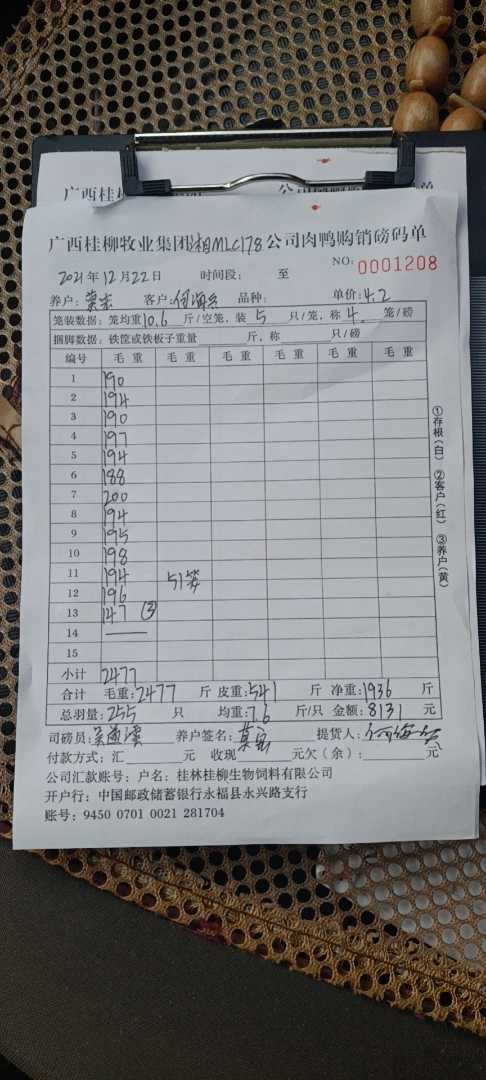 广西桂
公司肉鸭购销磅码单
广西桂柳牧业集团湘MLC178公司肉鸭购销磅码单
NO: 0001208
2021年12月22日 时间段: 至
养户: 客户: 品种: 单价:4.2
笼装数据: 笼均重10.6斤/空笼, 装5只/笼, 称4.笼/磅
捆脚数据: 铁筐或铁板子重量 斤, 称 只/磅
编号 毛重 毛重 毛重 毛重 毛重 毛重
1 190
2 194
3 190
4 197
5 194
6 188
7 200
8 194
9 195
10 198
11 194 51笼
12 196
13 147 ③
14 —
15
小计 2477
合计 毛重:2477斤 皮重:541斤 净重:1936斤
总羽量:255只 均重:7.6斤/只 金额:8131元
司磅员: 养户签名: 提货人:
付款方式: 汇 元 收现 元欠(余): 元
公司汇款账号: 户名: 桂林桂柳生物饲料有限公司
开户行: 中国邮政储蓄银行永福县永兴路支行
账号: 9450 0701 0021 281704
①存根(白) ②客户(红) ③养户(黄)